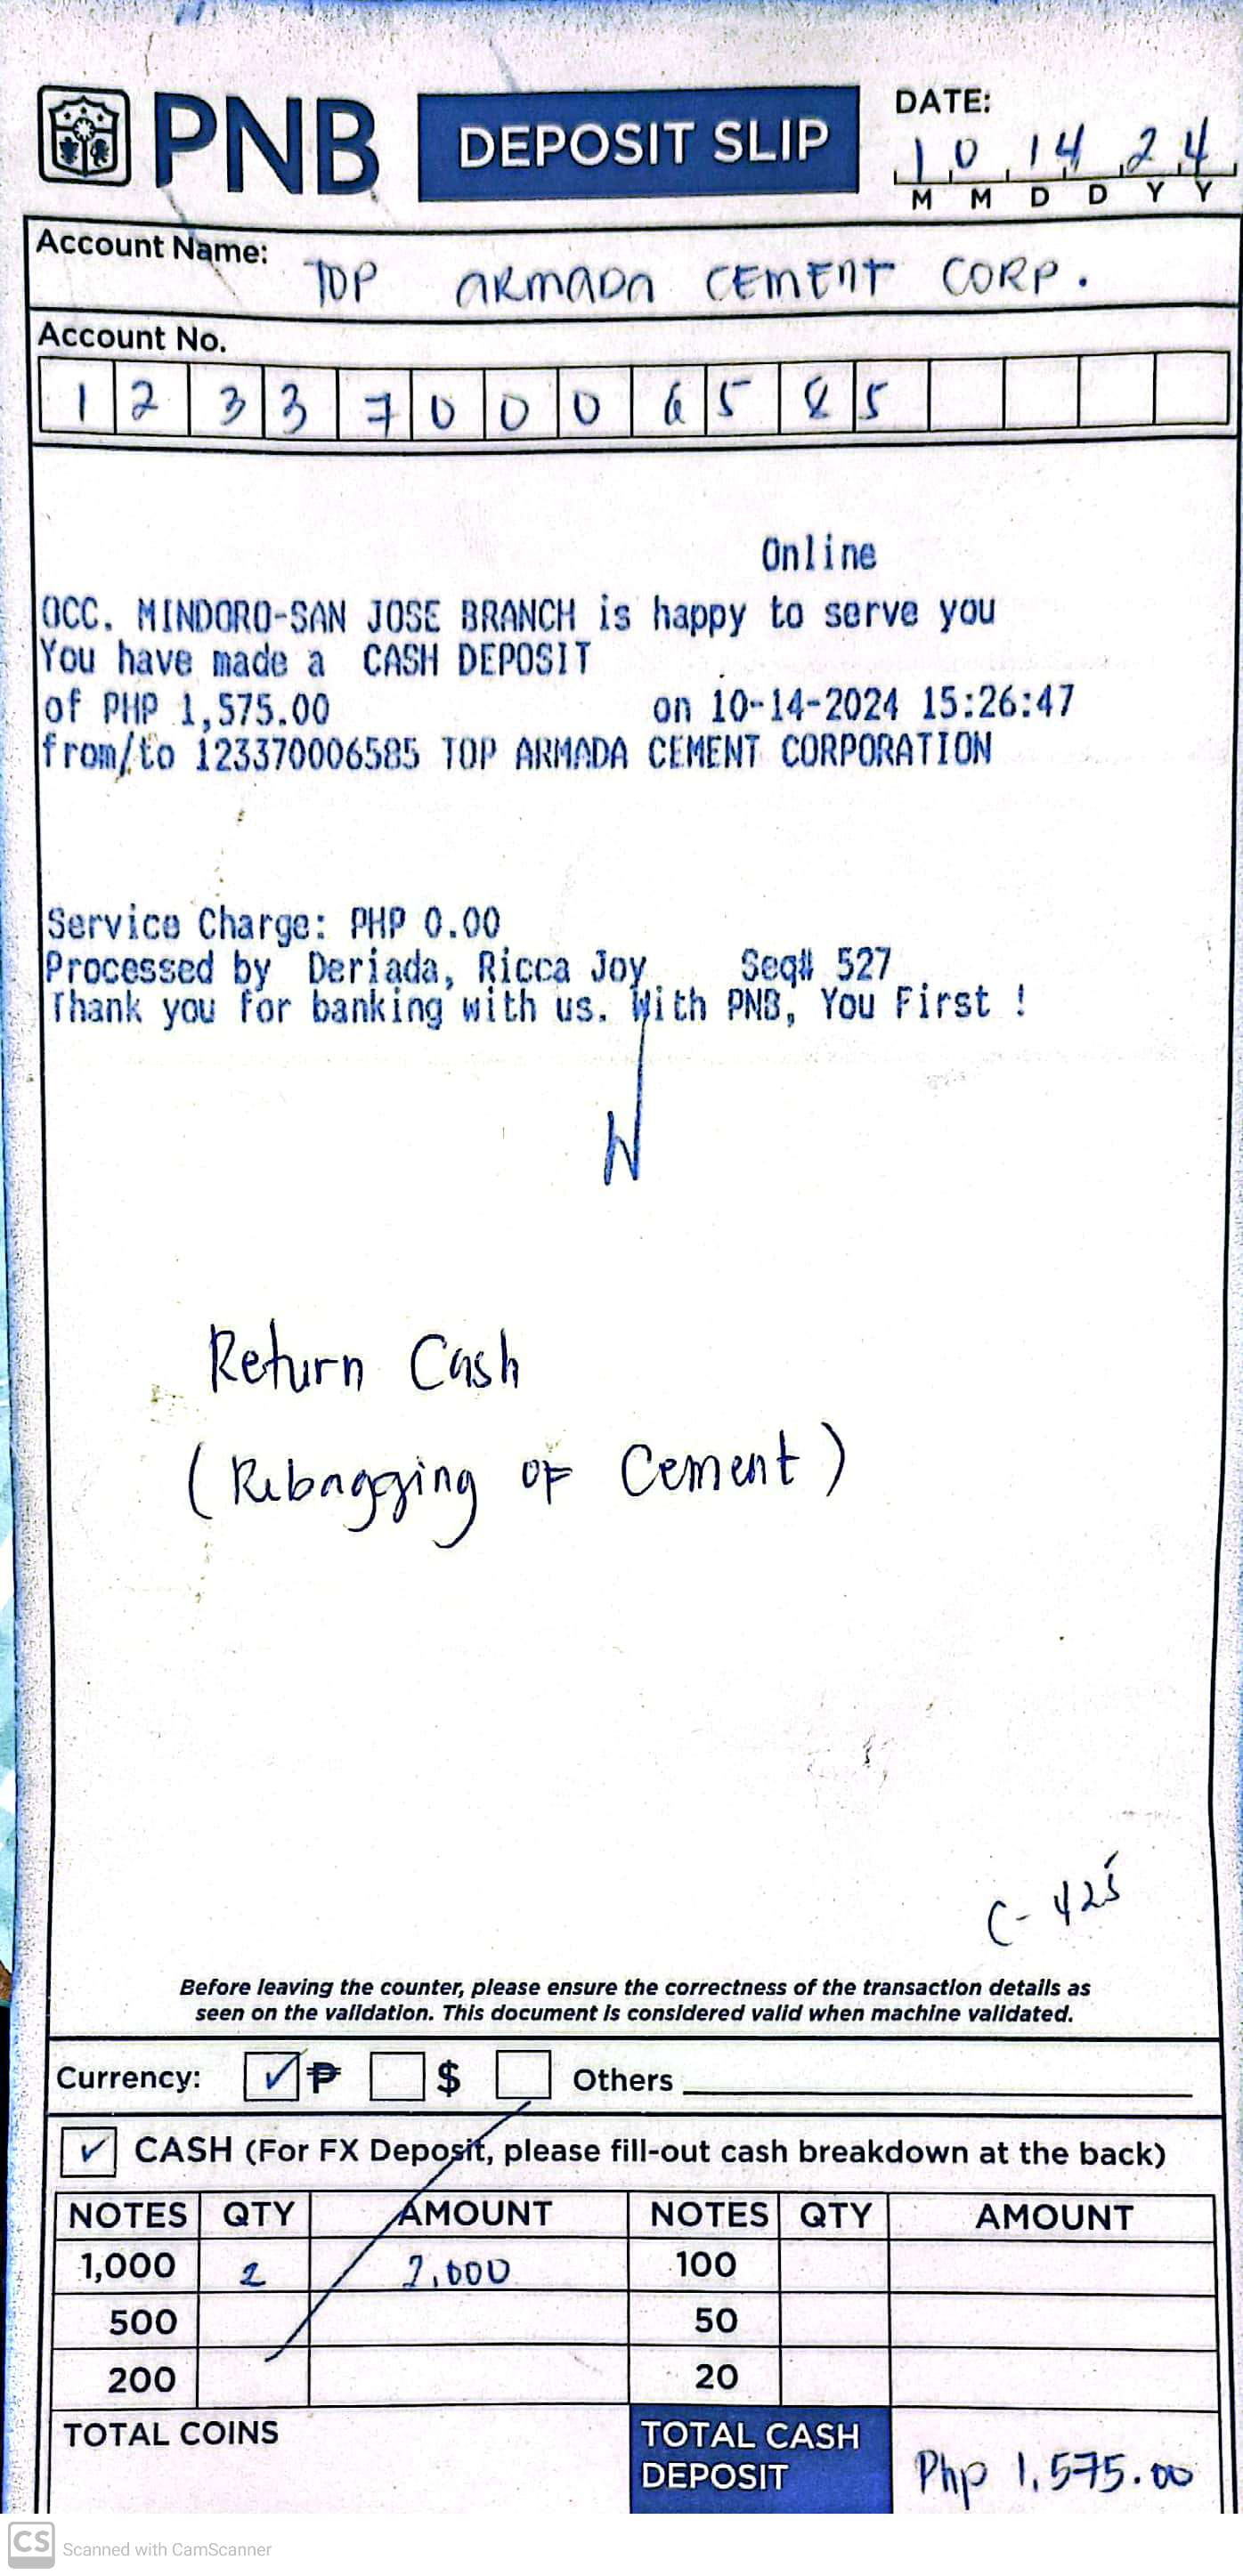 PNB DEPOSIT SLIP
DATE:
10 14 24
M M D D Y Y
Account Name: TOP ARMADA CEMENT CORP.
Account No.
1 2 3 3 7 0 0 0 6 5 8 5
Online
OCC. MINDORO-SAN JOSE BRANCH is happy to serve you
You have made a CASH DEPOSIT
of PHP 1,575.00 on 10-14-2024 15:26:47
from/to 123370006585 TOP ARMADA CEMENT CORPORATION
Service Charge: PHP 0.00
Processed by Deriada, Ricca Joy Seq# 527
Thank you for banking with us. With PNB, You First !
Return Cash
(Rebagging OF Cement)
C- 425
Before leaving the counter, please ensure the correctness of the transaction details as
seen on the validation. This document is considered valid when machine validated.
Currency: ✓ ₱ $ Others
✓ CASH (For FX Deposit, please fill-out cash breakdown at the back)
NOTES QTY AMOUNT NOTES QTY AMOUNT
1,000 2 2,000 100
500 50
200 20
TOTAL COINS TOTAL CASH
DEPOSIT Php 1,575.00
CS Scanned with CamScanner